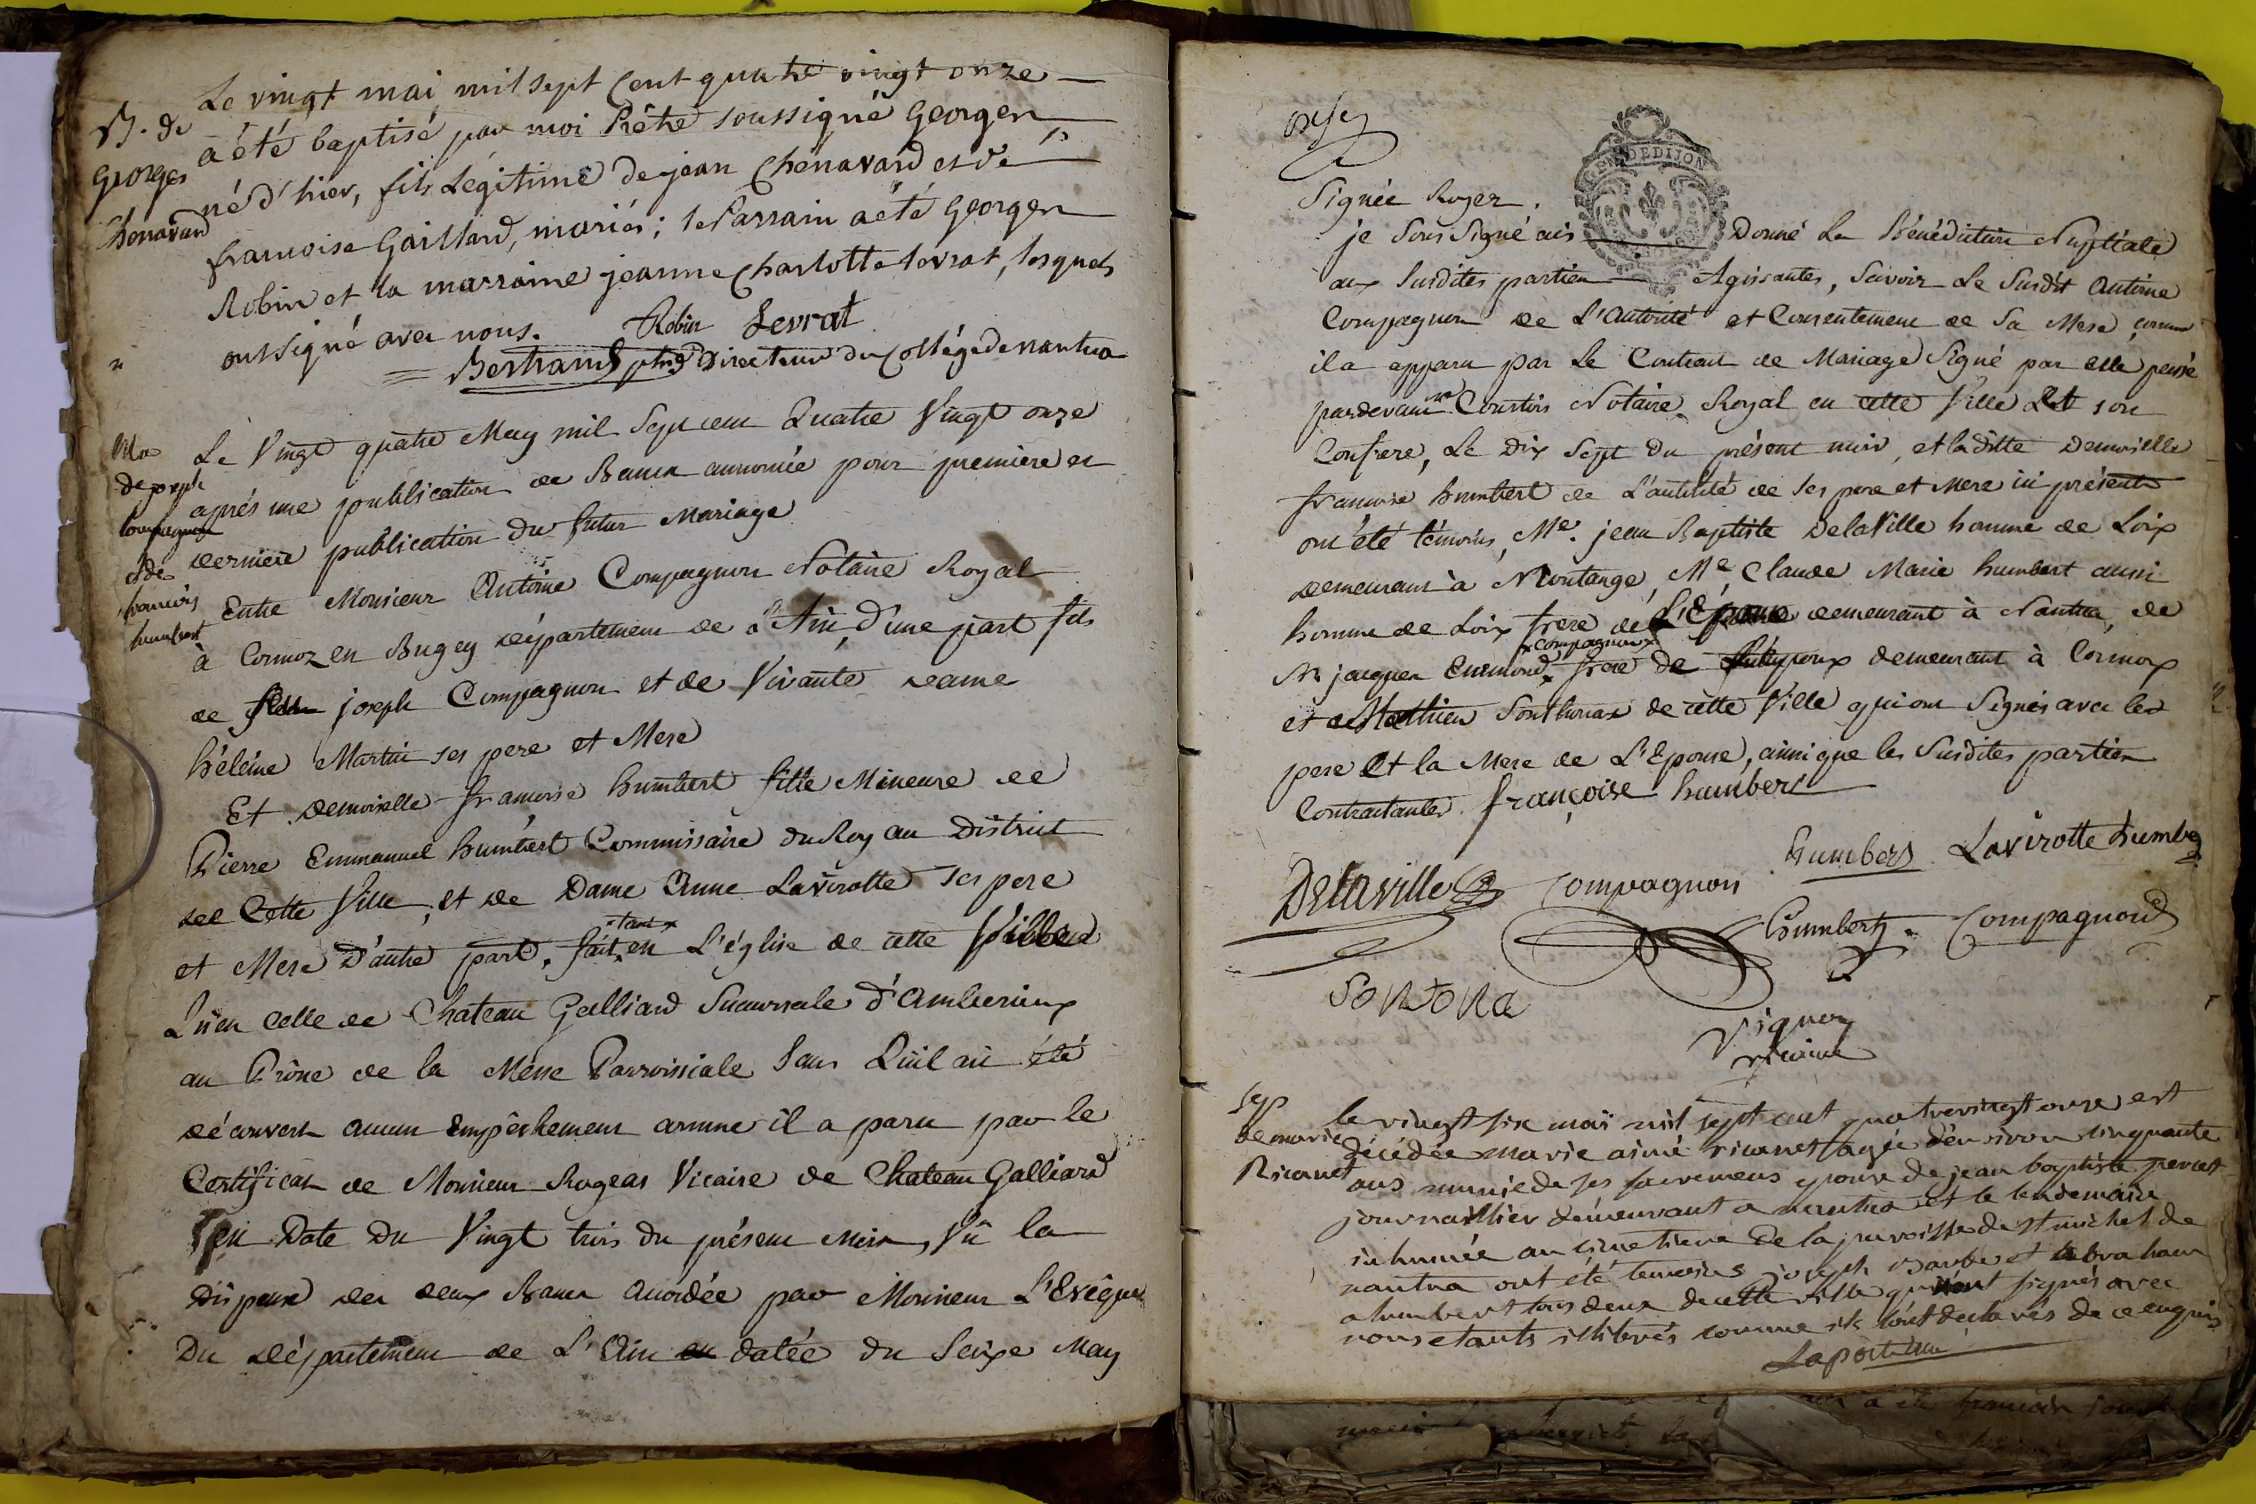 Le vingt mai mil sept cent quatre vingt onze
B. de
Georges
Chenavard
a été baptisé par moi Prêtre soussigné Georges
né d'hier, fils Légitime de jean Chenavard et de
francoise Gaillard, mariés; le Parrain a été Georges
Robin et la marraine jeanne Charlotte Levrat, lesquels
ont signé avec nous.
Robin Levrat
Bertrand ptre Directeur du Collége de nantua
Ma
de joseph
Compagnon
et de
francois
humbert
Le Vingt quatre May mil Sept cent Quatre Vingt onze
aprés une publication de Bancs annoncée pour premiere et
derniere publication du futur Mariage
Entre Monsieur Antoine Compagnon Notaire Royal
à Cormoz en Bugey département de L'Ain, d'une part fils
de feu joseph Compagnon et de Vivante dame
héléine Martin ses pere et Mere
Et demoiselle francoise humbert fille Mineure de
Pierre Emmanuel humbert Commissaire du Roy au District
de Cette Ville, et de Dame Anne Lavirotte ses pere
et Mere D'autre part. fait x tant x en L'église de cette Ville
Qu'en Celle de Chateau Galliard Succursale d'Amberieux
au Prône de la Messe Parroissiale Sans Qu'il ait été
découvert aucun Empêchement comme il a paru par le
Certificat de Monsieur Rogeas Vicaire de Chateau Galliard
en Date Du Vingt trois du présent Mois, Vû la
Dispense des deux Bancs Accordée par Monsieur L'Evêque
Du département de L'Ain datée du Seize May
Signée Royer.
je Sous Signé ais Donné La Bénédiction Nuptiale
GEN DE DIJON
aux Susdites parties Agissantes, Savoir Le Susdit Antoine
Compagnon de L'Autorité et Consentement de Sa Mere, comme
il a apparu par Le Contrat de Mariage Signé par elle passé
pardevant me Courtois Notaire Royal en cette Ville Et son
Confrere, Le Dix Sept du présent mois, et ladite Demoiselle
francoise humbert de L'autorité de ses pere et Mere ici présents
ont été témoins, Me. jean Baptiste Delaville homme de Loix
demeurant à Montange, Me Claude Marie humbert aussi
homme de Loix frere de L'Epouse demeurant à Nantua, de
x compagnon x
Mr jacques Emmond x frere de L'époux demeurant à Cormoz
et Mathieu Sonthonax de cette Ville qui ont Signés avec les
pere Et la Mere de L'Epouse, ainsi que les Susdites parties
Contractantes. françoise humbert
humbert Lavirotte humbert
Delaville Compagnon
humbert. Compagnon
Sontona
Vignon
vicaire
Sep
de marie
Ricanet
le vingt six mai mil sept cent quatre vingt onze est
décédée marie aimé ricanet agée d'environ cinquante
ans munie de ses sacremens epouse de jean baptiste
journallier demeurant a nantua et le lendemain
inhumée au cimetiere de la paroisse de st michel de
nantua ont été temoins joseph et abraham
humbert tous deux de cette ville qui n'ont signés avec
nous etants illitérés comme ils l'ont declarés de ce enquis
Laporte